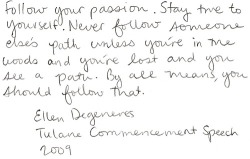 Follow your passion. Stay true to
yourself. Never follow someone
else's path unless you're in the
woods and you're lost and you
see a path. By all means, you
should follow that.
Ellen Degeneres
Tulane Commencement Speech
2009